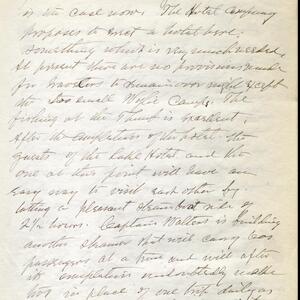 is the case now. The Hotel Company
proposes to erect a hotel here,
something which is very much needed.
At present there are no provisions made
for travelers to remain over night except
the two small Wylie Camps. The
fishing at the Thumb is excellent.
After the completion of the hotel the
guests of the Lake Hotel and the
one at this point will have an
easy way to visit each other by
taking a pleasant steamboat ride of
2½ hours. Captain Waters is building
another steamer that will carry
passengers at a time and will after
its completion undoubtedly make
two in place of one trip daily, as